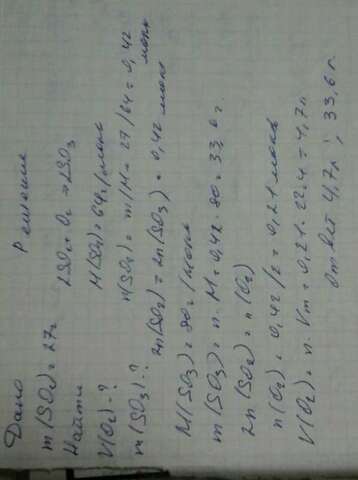 Дано
m(SO₂) = 27г
Найти
V(O₂) - ?
m(SO₃) - ?
Решение
2SO₂ + O₂ = 2SO₃
M(SO₂) = 64г/моль
n(SO₂) = m/M = 27/64 = 0,42 моль
2n(SO₂) = 2n(SO₃) = 0,42 моль
M(SO₃) = 80г/моль
m(SO₃) = n · M = 0,42 · 80 = 33,6 г.
2n(SO₂) = n(O₂)
n(O₂) = 0,42/2 = 0,21 моль
V(O₂) = n · Vm = 0,21 · 22,4 = 4,7л
Ответ 4,7л ; 33,6 г.